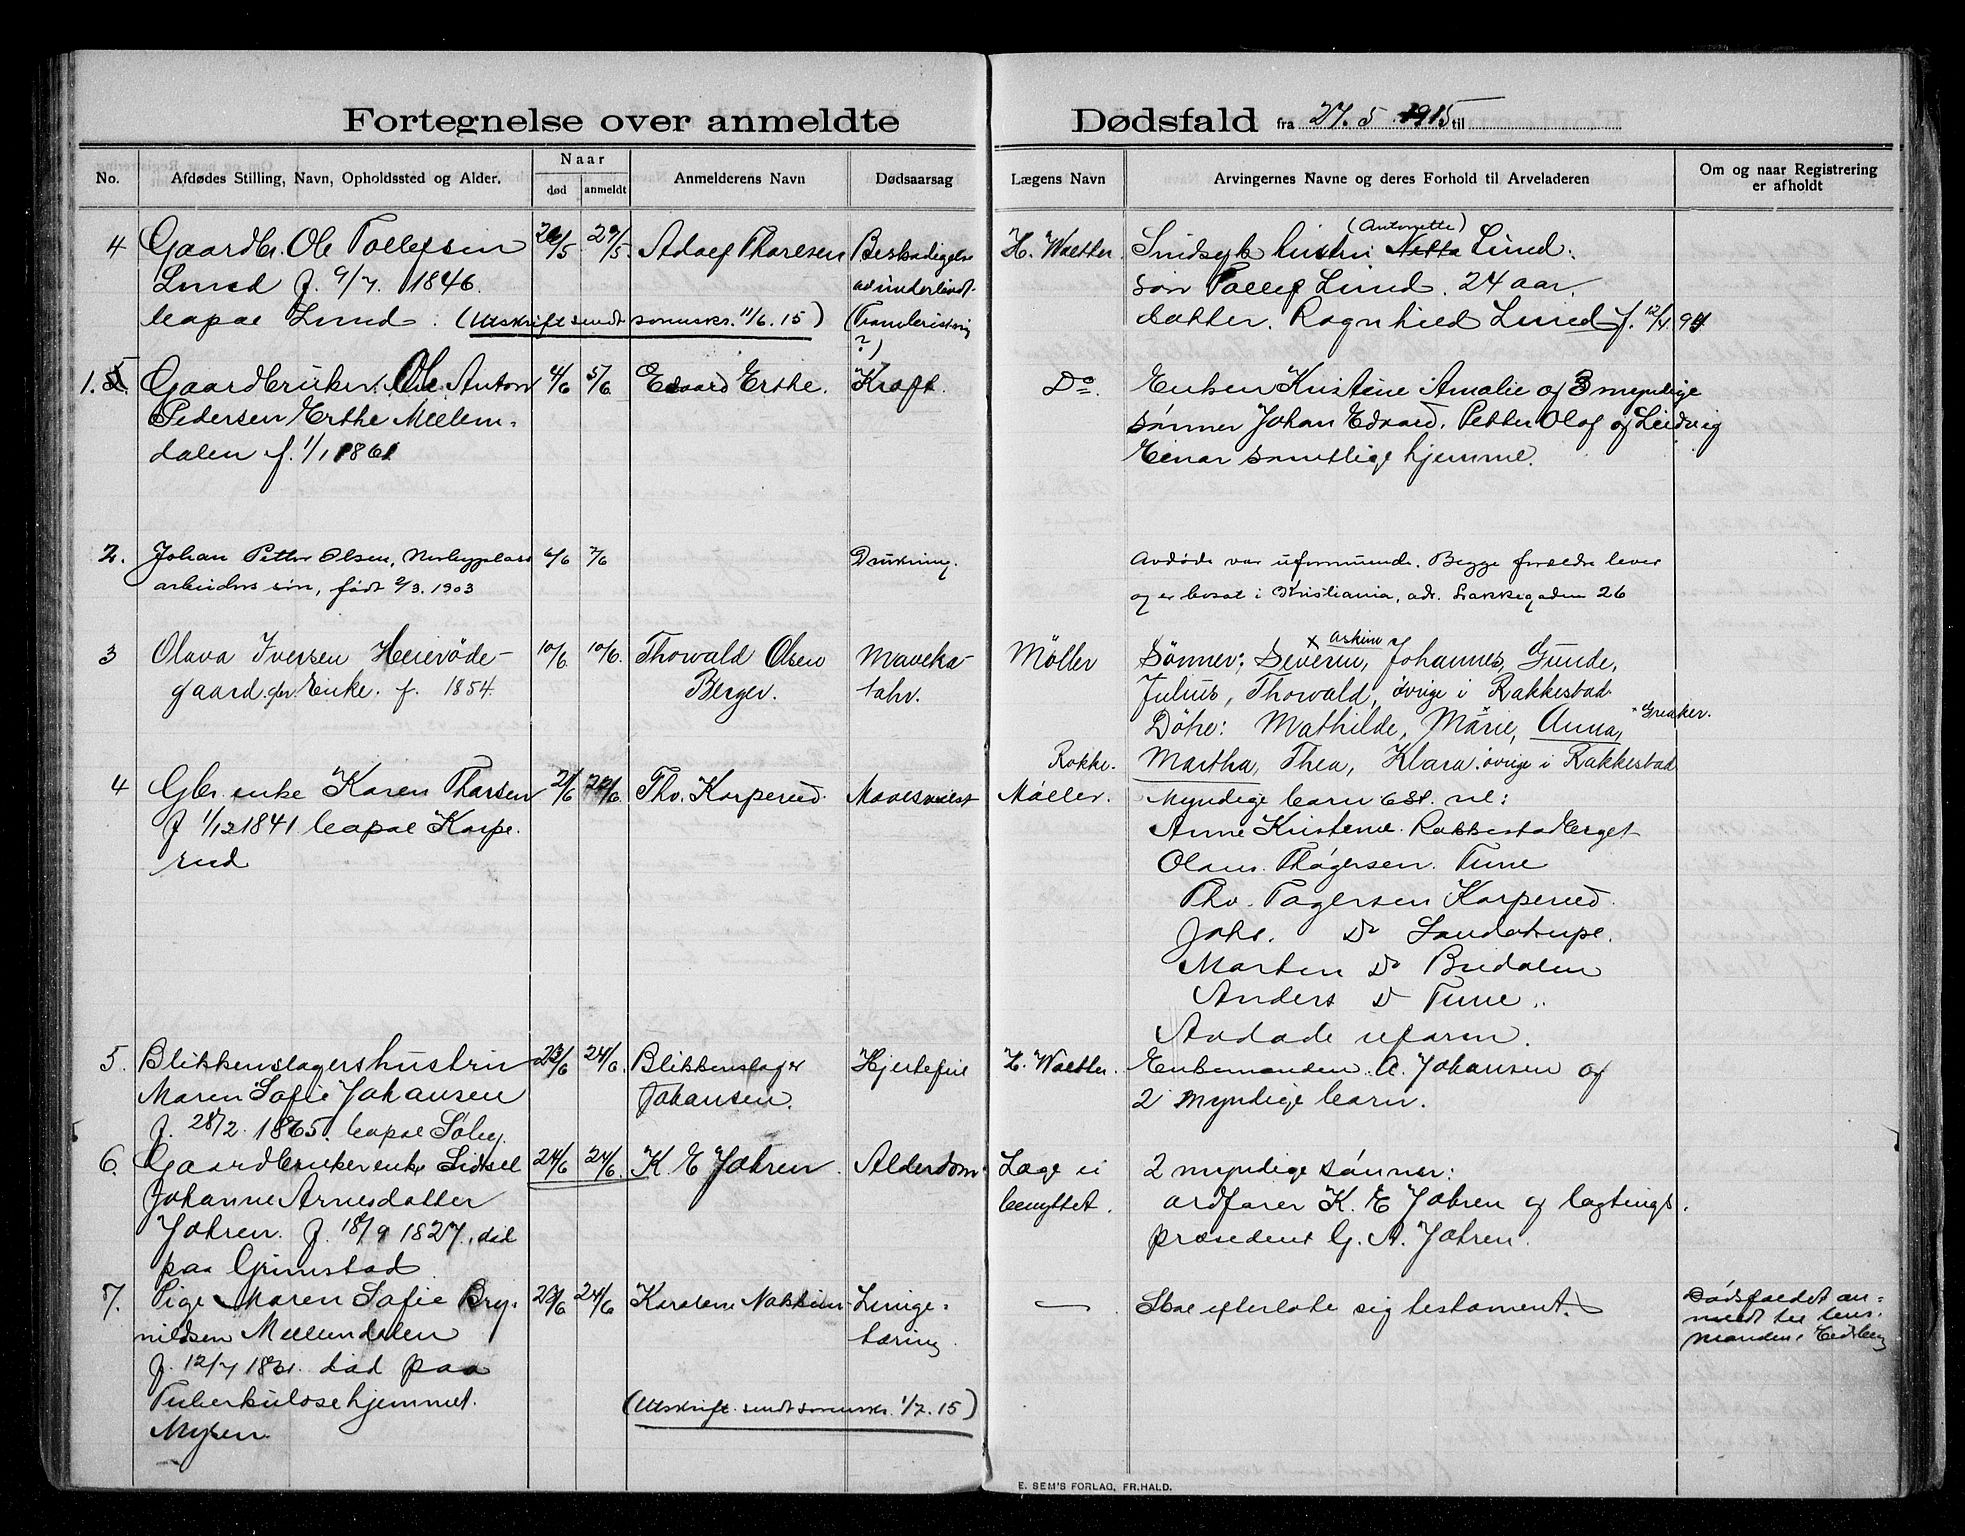 Fortegnelse over anmeldte Dødsfald fra 27. 5. 1915 til
No.
Afdødes Stilling, Navn, Opholdssted og Alder.
Naar
død
anmeldt
Anmelderens Navn
Dødsaarsag
Lægens Navn
Arvingernes Navne og deres Forhold til Arveladeren
Om og naar Registrering
er afholdt
4
Gaardbr. Ole Tollefsen
Lund f. 9/7. 1846.
bopæl Lund. (Utskrift sendt sorenskr. 11/6. 15)
29/5
Adolf Thoresen
Beskadigelse
av underlivet
?)
H. Waetter.
(Antonette)
Sindsyk hustru Netta Lund.
søn Tollef Lund. 24 aar.
datter. Ragnhild Lund f. 12/4. 94
1. 5.
Gaardbruker. Ole Anton
Pedersen Erthe Mellem-
dalen f. 1/1 1861
4/6
5/6
Edvard Erthe.
Kræft.
Do.
Enken Kristine Amalie og 3 myndige
sønner Johan Edvard, Petter Olaf og Ludvig
Einar samtlige hjemme.
2.
Johan Petter Olsen,
arbeiders søn, født 2/3. 1903
6/6
7/6
Drukning.
Avdøde var uformuende. Begge forældre lever
og er bosat i Kristiania, adr. Lakkegaden 26
3
Olava Iversen Heierøde-
gaard gbr. Enke. f. 1854.
10/6
10/6.
Thorvald Olsen
Berger.
Maveka-
tahr.
Møller
x Askim
Sønner: Severin, Johannes, Gunde,
Julius, Thorvald, øvrige i Rakkestad.
x Greaker.
Døtre: Mathilde, Marie, Anna,
Martha, Thea, Klara. øvrige i Rakkestad
4
Gbr. enke Karen Thorsen
f 1/12 1841. bopæl Korpe-
rud
21/6
22/6
Thv. Korperud.
Rokke.
Møller.
Myndige barn 6 st. nl:
Anne Kristine. Rakkestadberget
Olaus. Thøgersen. Tune
Thv. Tøgersen Korperud.
Johs. Do
Morten Do Budalen
Anders Do Tune.
Avdøde uform.
5.
Blikkenslagershustru
Maren Sofie Johansen
f. 28/2. 1865. bopæl Løby.
23/6
24/6.
Blikkenslager
Johansen.
Hjertefeil
H. Waetter.
Enkemanden A. Johansen og
2 myndige barn.
6.
Gaardbrukerenke Sidsel
Johanne Arnesdatter
Jahren. f. 18/9 1827. død
paa Grimstad
24/6
24/6.
K. E Jahren.
Alderdom.
Læge ei
benyttet.
2 myndige sønner:
ordfører K. E Jahren og lagtings-
præsident G. A. Jahren.
7.
Pige Maren Sofie Bry-
nildsen Mellemdalen
f. 12/7 1861. død paa
Tuberkulosehjemmet.
Mysen.
23/6
24/6
Karoline Nakkim
Lunge-
tæring.
(Utskrift sendt sorenskr. 1/7. 15)
Skal efterlate sig testament.
Dødsfaldet an-
meldt til lens-
manden i Eidsberg
E. SEM'S FORLAG, FR.HALD.